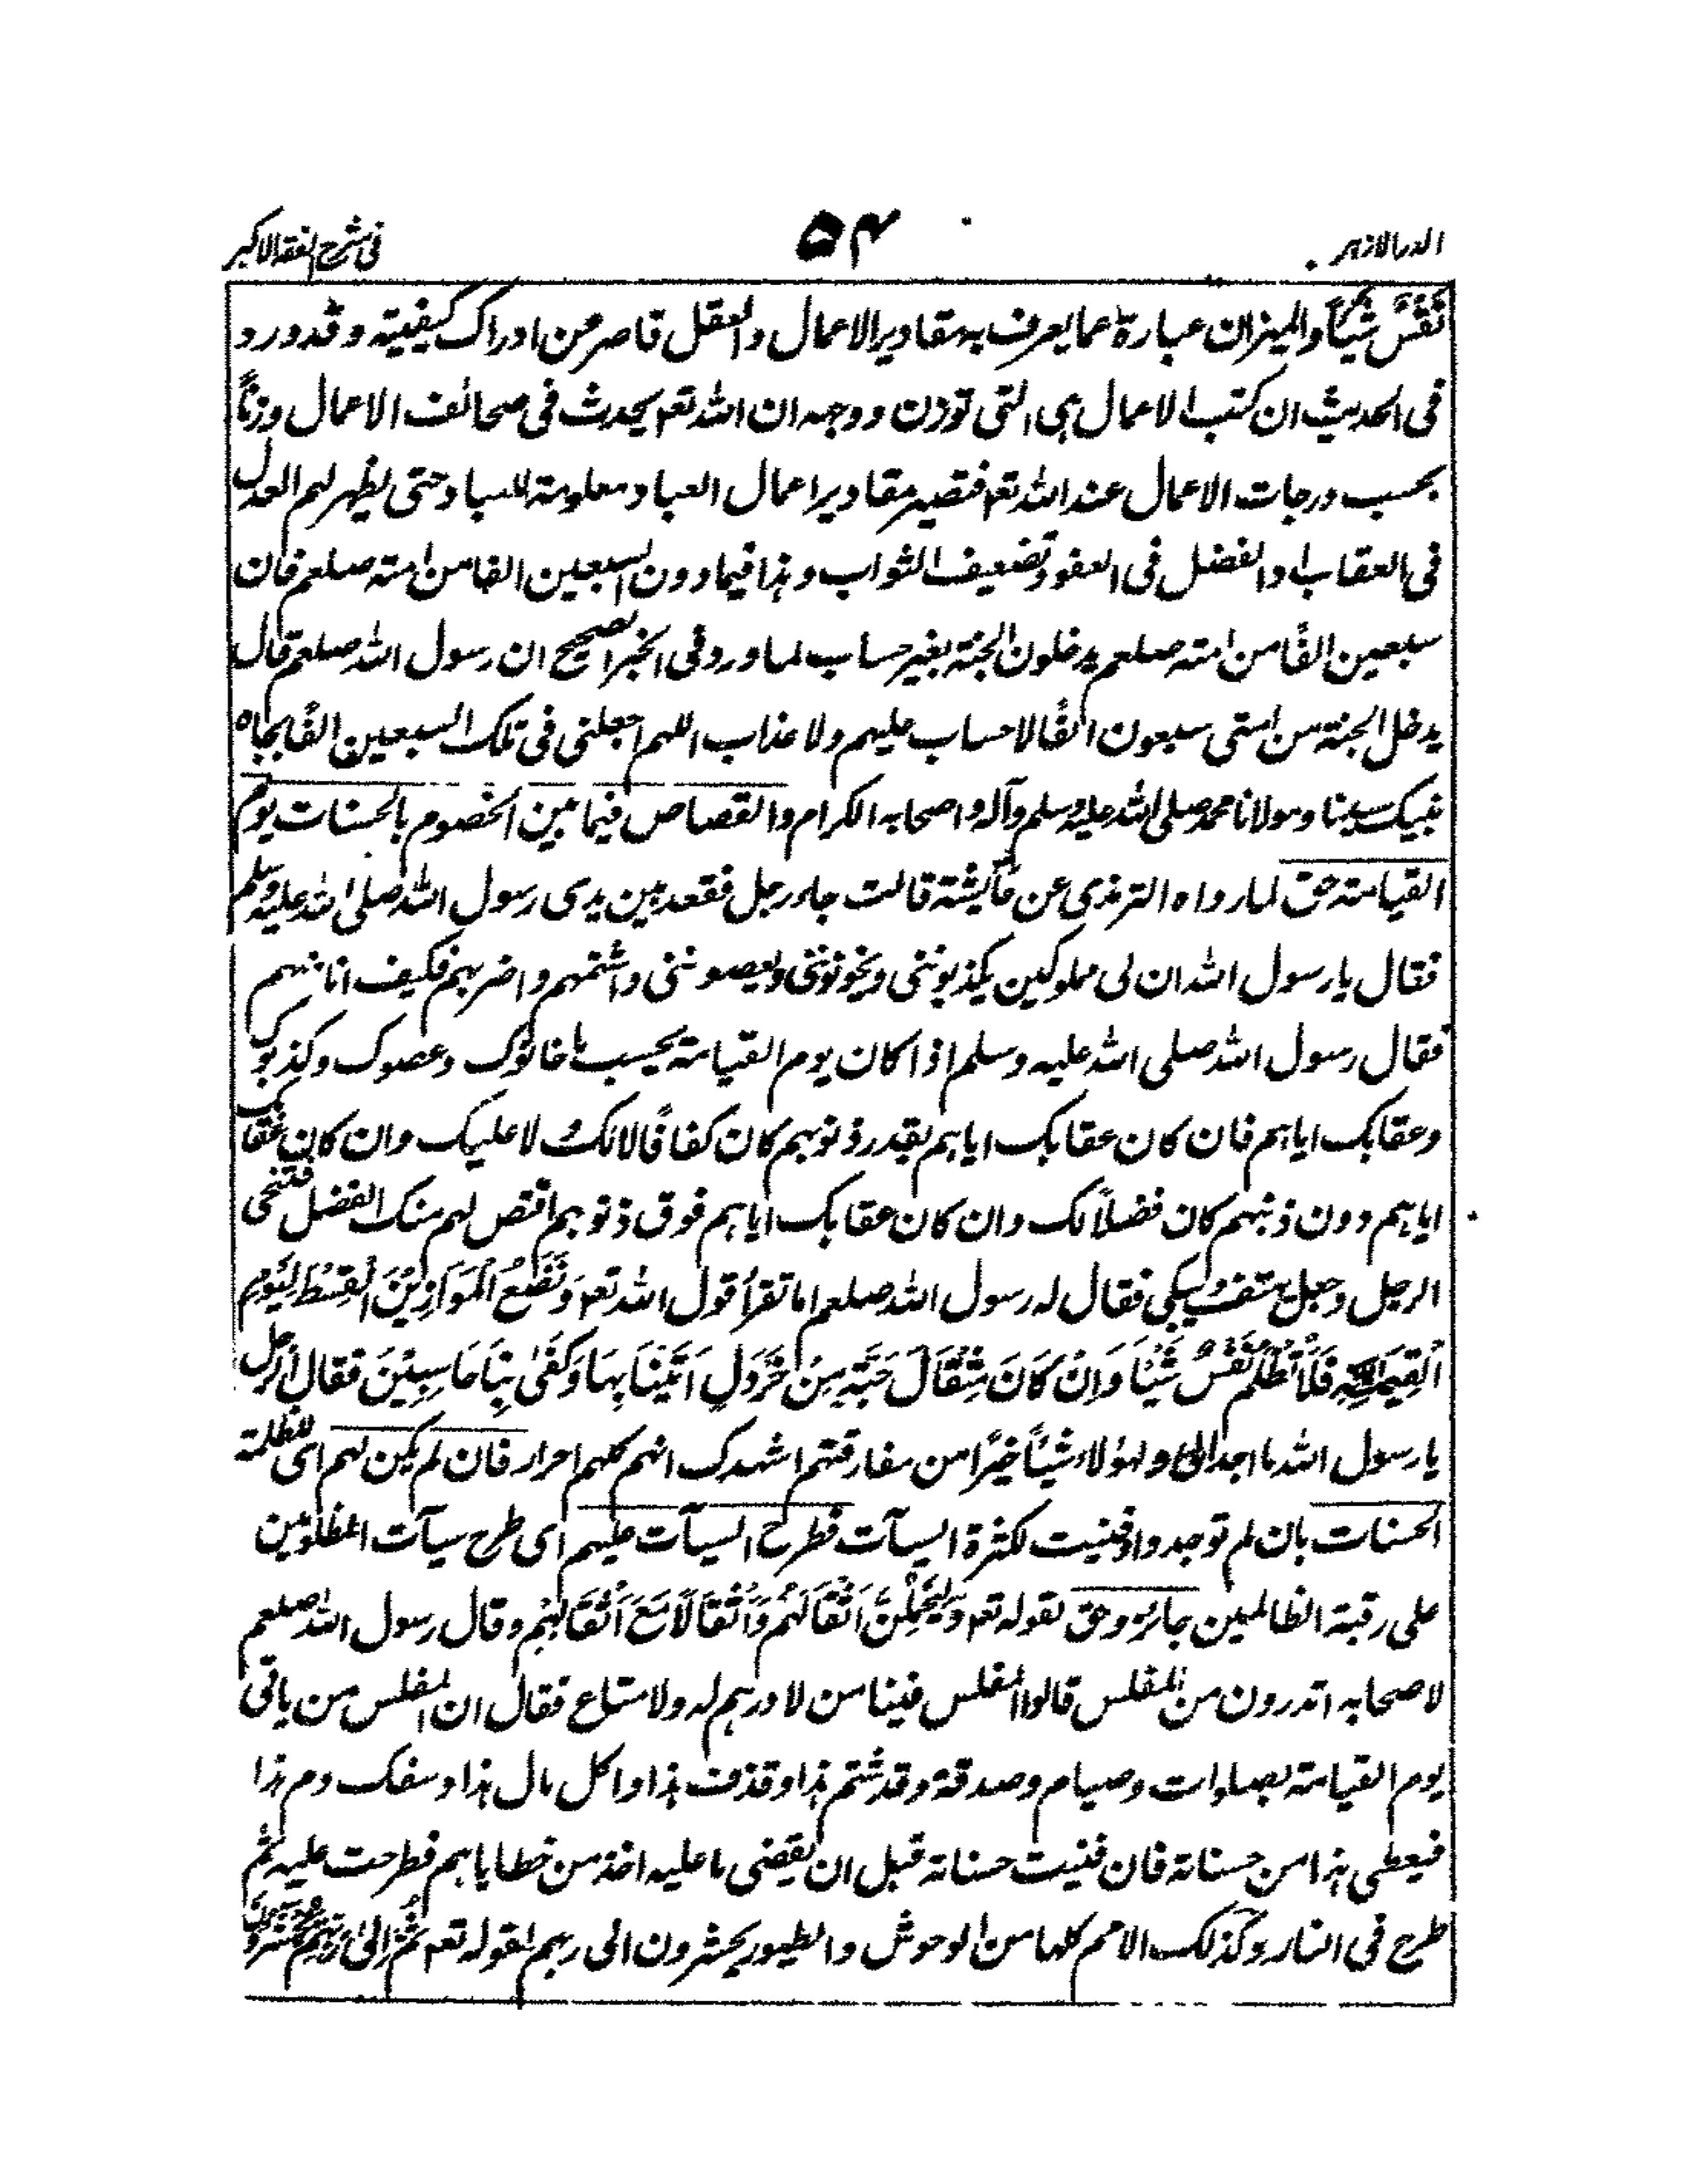 الدر الازہر
۵۴
فی شرح الفقہ الاکبر
نَفْسٌ شَيْئًا والمیزان عبارة عما یعرف بہ مقادیر الاعمال والعقل قاصر عن ادراک کیفیتہ وقد ورد
فی الحدیث ان کتب الاعمال ہی التی توزن ووجہہ ان اللہ تعہ یحدث فی صحائف الاعمال وزنًا
بحسب درجات الاعمال عند اللہ تعہ فتصیر مقادیر اعمال العباد معلومة للعباد حتی یظہر لہم العدل
فی العقاب او الفضل فی العفو وتضعیف الثواب وہذا فیما دون السبعین الفا من امتہ صلعم فان
سبعین الفًا من امتہ صلعم یدخلون الجنة بغیر حساب لما ورد فی الخبر الصحیح ان رسول اللہ صلعم قال
یدخل الجنة من امتی سبعون الفًا لا حساب علیہم ولا عذاب اللہم اجعلنی فی تلک السبعین الفًا بجاہ
نبیک سیدنا ومولانا محمد صلی اللہ علیہ وسلم وآلہ واصحابہ الکرام والقصاص فیما بین الخصوم بالحسنات یوم
القیامة حق لما رواہ الترمذی عن عآیشة قالت جاء رجل فقعد بین یدی رسول اللہ صلی اللہ علیہ وسلم
فقال یا رسول اللہ ان لی مملوکین یکذبوننی ویخونوننی ویعصوننی واشتمہم واضربہم فکیف انا منہم
فقال رسول اللہ صلی اللہ علیہ وسلم اذا کان یوم القیامة یحسب ما خانوک وعصوک وکذبوک
وعقابک ایاہم فان کان عقابک ایاہم بقدر ذنوبہم کان کفافًا لا لک ولا علیک وان کان عقابک
ایاہم دون ذنبہم کان فضلاً لک وان کان عقابک ایاہم فوق ذنوبہم اقتص لہم منک الفضل فتنحی
الرجل وجعل یہتف ویبکی فقال لہ رسول اللہ صلعم اما تقرأ قول اللہ تعہ وَنَضَعُ الْمَوَازِیْنَ الْقِسْطَ لِیَوْمِ
الْقِیٰمَةِ فَلَا تُظْلَمُ نَفْسٌ شَیْئًا وَاِنْ کَانَ مِثْقَالَ حَبَّةٍ مِنْ خَرْدَلٍ اَتَیْنَا بِہَا وَکَفٰی بِنَا حَاسِبِیْنَ فقال الرجل
یا رسول اللہ ما اجد لی ولہؤلاء شیئًا خیرًا من مفارقتہم اشہدک انہم کلہم احرار فان لم یکن لہم ای للظلمة
الحسنات بان لم توجد او فنیت لکثرة السیآت فطرح السیآت علیہم ای طرح سیآت المظلومین
علی رقبة الظالمین جائز وحق لقولہ تعہ وَلَیَحْمِلُنَّ اَثْقَالَہُمْ وَاَثْقَالًا مَعَ اَثْقَالِہِمْ وقال رسول اللہ صلعم
لاصحابہ اتدرون من المفلس قالوا المفلس فینا من لا درہم لہ ولا متاع فقال ان المفلس من یاتی
یوم القیامة بصلوات وصیام وصدقة وقد شتم ہذا وقذف ہذا واکل مال ہذا وسفک دم ہذا
فیعطی ہذا من حسناتہ فان فنیت حسناتہ قبل ان یقضی ما علیہ اخذ من خطایاہم فطرحت علیہ ثم
طرح فی النار وکذلک الامم کلہا من الوحوش والطیور یحشرون الی ربہم لقولہ تعہ ثُمَّ اِلٰی رَبِّہِمْ یُحْشَرُوْنَ